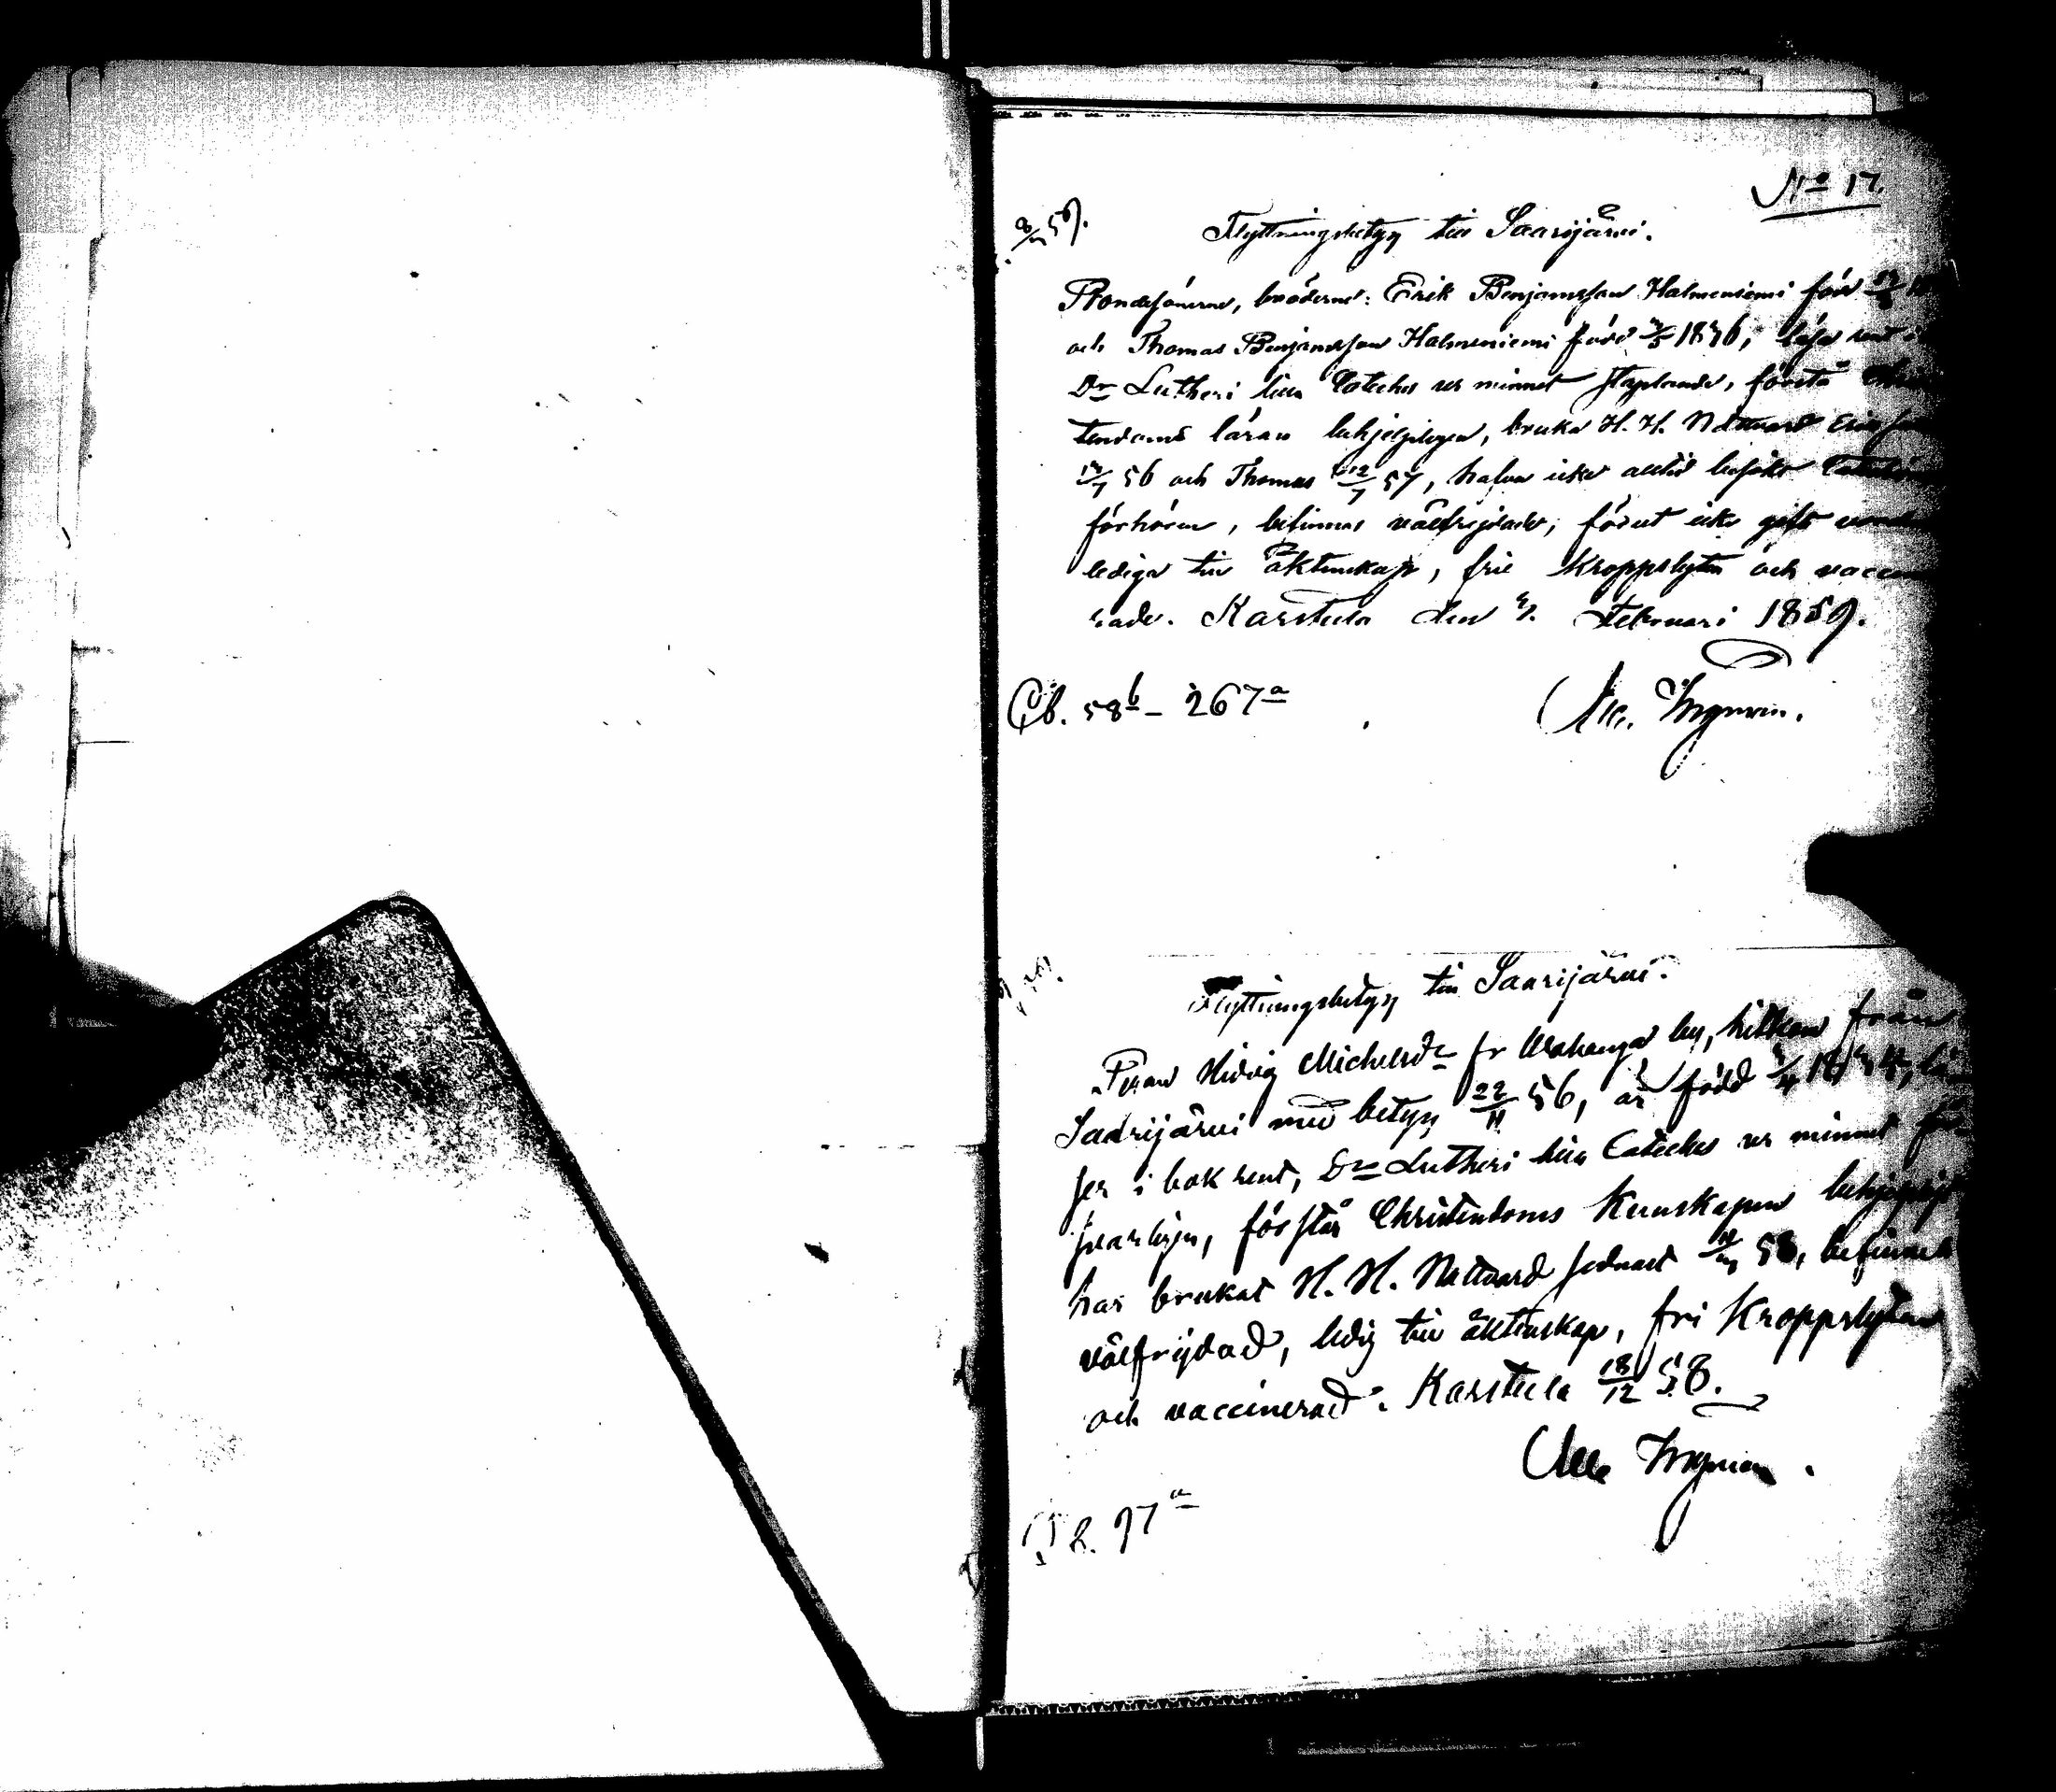 No 17.
Flyttningsbetyg till Saarijärvi.
Bondesönerne, bröderne: Erik Benjamsson Halmeniemi född
och Thomas Benjamsson Halmeniemi född 1836, läsa rent i
Dr Lutheri lilla Cateches ur minnet staplande, förstå
tendoms läran behjelpligen, bruka H. H. Nattvard Erik
56 och Thomas 12/7 57, hafva icke alltid besökt
förhören, befinnas välfrejdade, förut icke gift
lediga till äktenskap, frie Kroppslyten och vacci
rade. Karstula den Februari 1859.
Cb. 58b - 267a
Flyttningsbetyg till Saarijärvi.
Pigan Hedvig Michelsdr fr by, hitkom från
Saarijärvi med betyg 22/11 56, är född lä
ser i bok rent, Dr Lutheri lilla Cateches ur minnet för
svarligen, förstår Christendoms Kunskapen
har brukat H. H. Nattvard sednast 58, befinnes
välfrejdad, ledig till äktenskap, fri Kroppslyten
och vaccinerad. Karstula 18/12 58.
97a